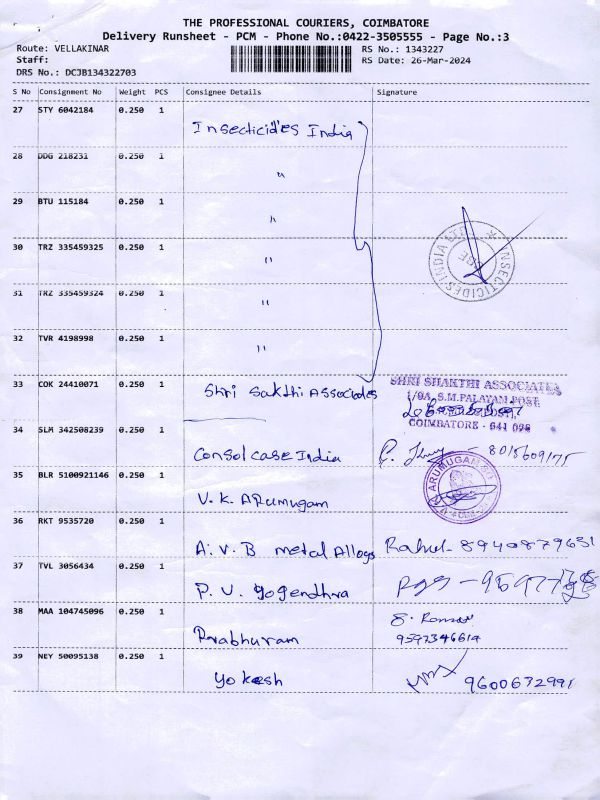 THE PROFESSIONAL COURIERS, COIMBATORE
Delivery Runsheet - PCM - Phone No.:0422-3505555 - Page No.:3
Route: VELLAKINAR RS No.: 1343227
Staff: RS Date: 26-Mar-2024
DRS No.: DCJB134322703
S No Consignment No Weight PCS Consignee Details Signature
27 STY 6042184 0.250 1
Insecticides India
28 DDG 218231 0.250 1
"
29 BTU 115184 0.250 1
"
30 TRZ 335459325 0.250 1
"
31 TRZ 335459324 0.250 1
"
32 TVR 4198998 0.250 1
"
INSECTICIDES INDIA LTD
33 COK 24410071 0.250 1
Shri Sakthi Associates
SHRI SHAKTHI ASSOCIATES
1/9A, S.M.PALAYAM POST
COIMBATORE - 641 098
34 SLM 342508239 0.250 1
Consol case India
35 BLR 5100921146 0.250 1
V. K. ARumugam
ARUMUGAM
36 RKT 9535720 0.250 1
A. V. B metal Alloys Rahul - 8940879631
37 TVL 3056434 0.250 1
P. V. Yogendhra
38 MAA 104745096 0.250 1
Prabhuram
9597346614
39 NEY 50095138 0.250 1
Yokesh 9600632991